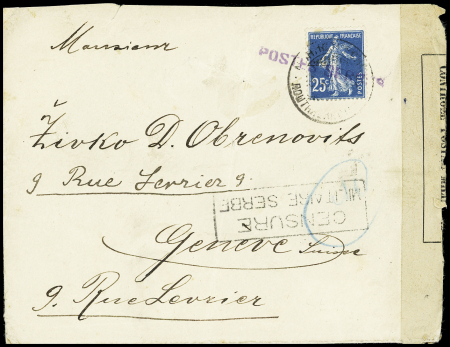 Monsieur
POSTES
REPUBLIQUE FRANÇAISE
25c
POSTES
Živko D. Obrenovits
9 Rue Levrier 9.
CENSURE
MILITAIRE SERBE
Genève Suisse
9. Rue Levrier